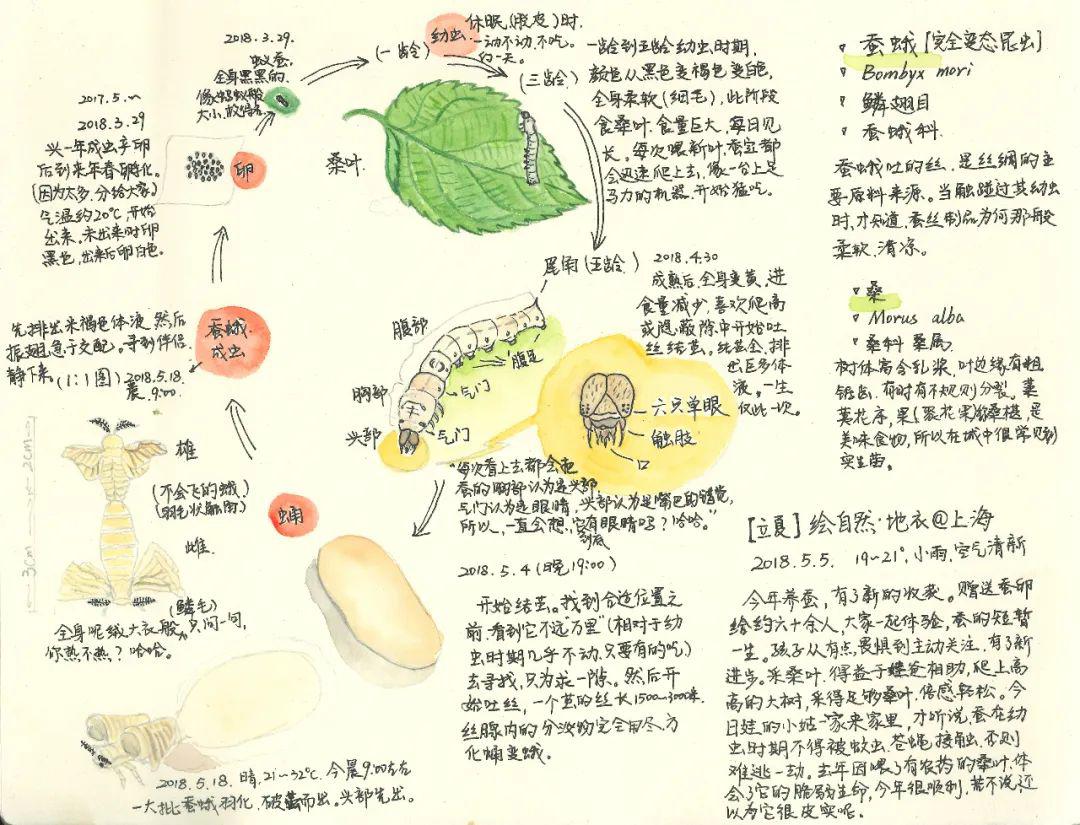 2017.5.~
2018.3.29
头一年成虫产卵
后到来年春孵化。
(因为太多,分给大家)
气温约20℃,开始
出来。未出来时卵
黑色,出来后卵白色。
卵
2018.3.29.
蚁蚕,
全身黑黑的,
像蚂蚁般
大小,故得名
(一龄)
幼虫
休眠(脱皮)时,
一动不动,不吃。
约一天。
(三龄)
桑叶
一龄到五龄幼虫时期,
颜色从黑色变褐色变白色,
全身柔软(细毛),此阶段
食桑叶,食量巨大,每日见
长。每次喂新叶,蚕宝都
会迅速爬上去,像一台上足
马力的机器,开始猛吃。
蚕蛾[完全变态昆虫]
Bombyx mori
鳞翅目
蚕蛾科
蚕蛾吐的丝,是丝绸的主
要原料来源。当触碰过其幼虫
时,才知道,蚕丝制品为何那般
柔软,清凉。
桑
Morus alba
桑科 桑属
树体富含乳浆,叶边缘有粗
锯齿,有时有不规则分裂。葇
荑花序,果(聚花果)称桑椹,是
美味食物,所以在城中很常见到
实生苗。
尾角(五龄)
腹部
腹足
气门
胸部
头部
气门
2018.4.30
成熟后,全身变黄,进
食量减少,喜欢爬高
或隐蔽隙中开始吐
丝结茧。结茧全,排
出巨多体
液。一生
仅此一次。
六只单眼
触肢
口
"每次看上去都会把
蚕的胸部认为是头部,
气门认为是眼睛,头部认为是嘴巴的错觉,
所以,一直会想,它到底有眼睛吗?哈哈。"
蚕蛾
成虫
先排出米褐色体液,然后
振翅急于交配。寻到伴侣,
静下来。(1:1图)2018.5.18.
晨9:00.
雄
(不会飞的蛾)
(羽毛状触角)
雌
2cm
3cm
(鳞毛)
全身呢绒大衣般,只问一句,
你热不热?哈哈。
蛹
2018.5.18.晴,21~32℃,今晨9:00左右
一大批蚕蛾羽化,破茧而出。头部先出。
2018.5.4(晚19:00)
开始结茧。找到合适位置之
前,看到它不远"万里"(相对于幼
虫时期几乎不动,只要有的吃)
去寻找,只为求一隙。然后开
始吐丝,一个茧的丝长1500~3000米,
丝腺内的分泌物完全用尽,方
化蛹变蛾。
[立夏]绘自然·地衣@上海
2018.5.5. 19~21°,小雨,空气清新
今年养蚕,有了新的收获。赠送蚕卵
给约六十余人,大家一起体验,蚕的短暂
一生。孩子从有点畏惧到主动关注,有了新
进步。采桑叶,得益于娃爸相助,爬上高
高的大树,采得足够桑叶,倍感轻松。今
日娃的小姑一家来家里,才听说,蚕在幼
虫时期不得被蚊虫、苍蝇接触,否则
难逃一劫。去年因喂了有农药的桑叶,体
会了它的脆弱生命,今年很顺利,若不说,还
以为它很皮实呢。